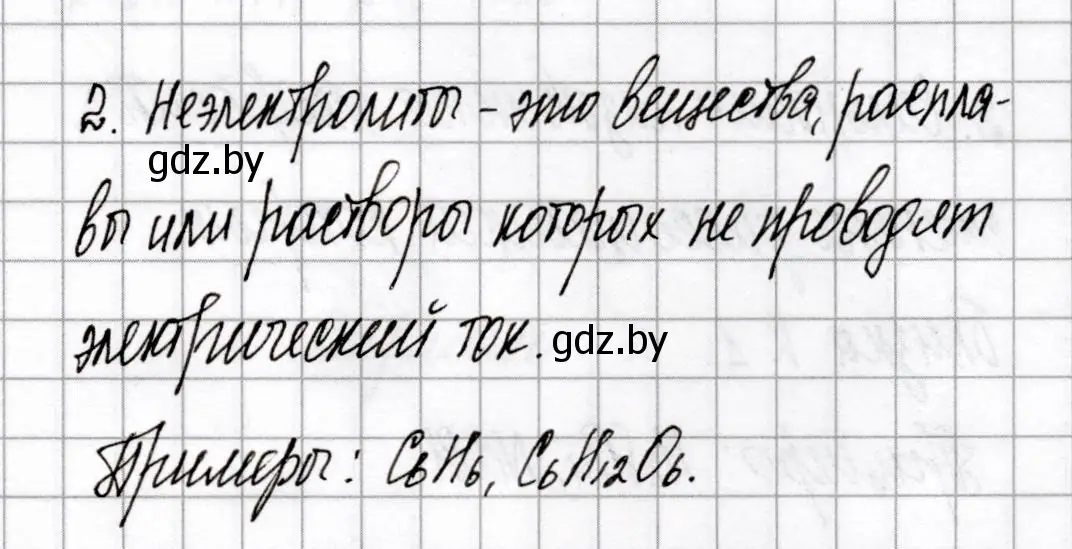 2. Неэлектролиты - это вещества, распла-
gdz.by
вы или растворы которых не проводят
электрический ток. gdz.by
Примеры: C6H6, C6H12O6.